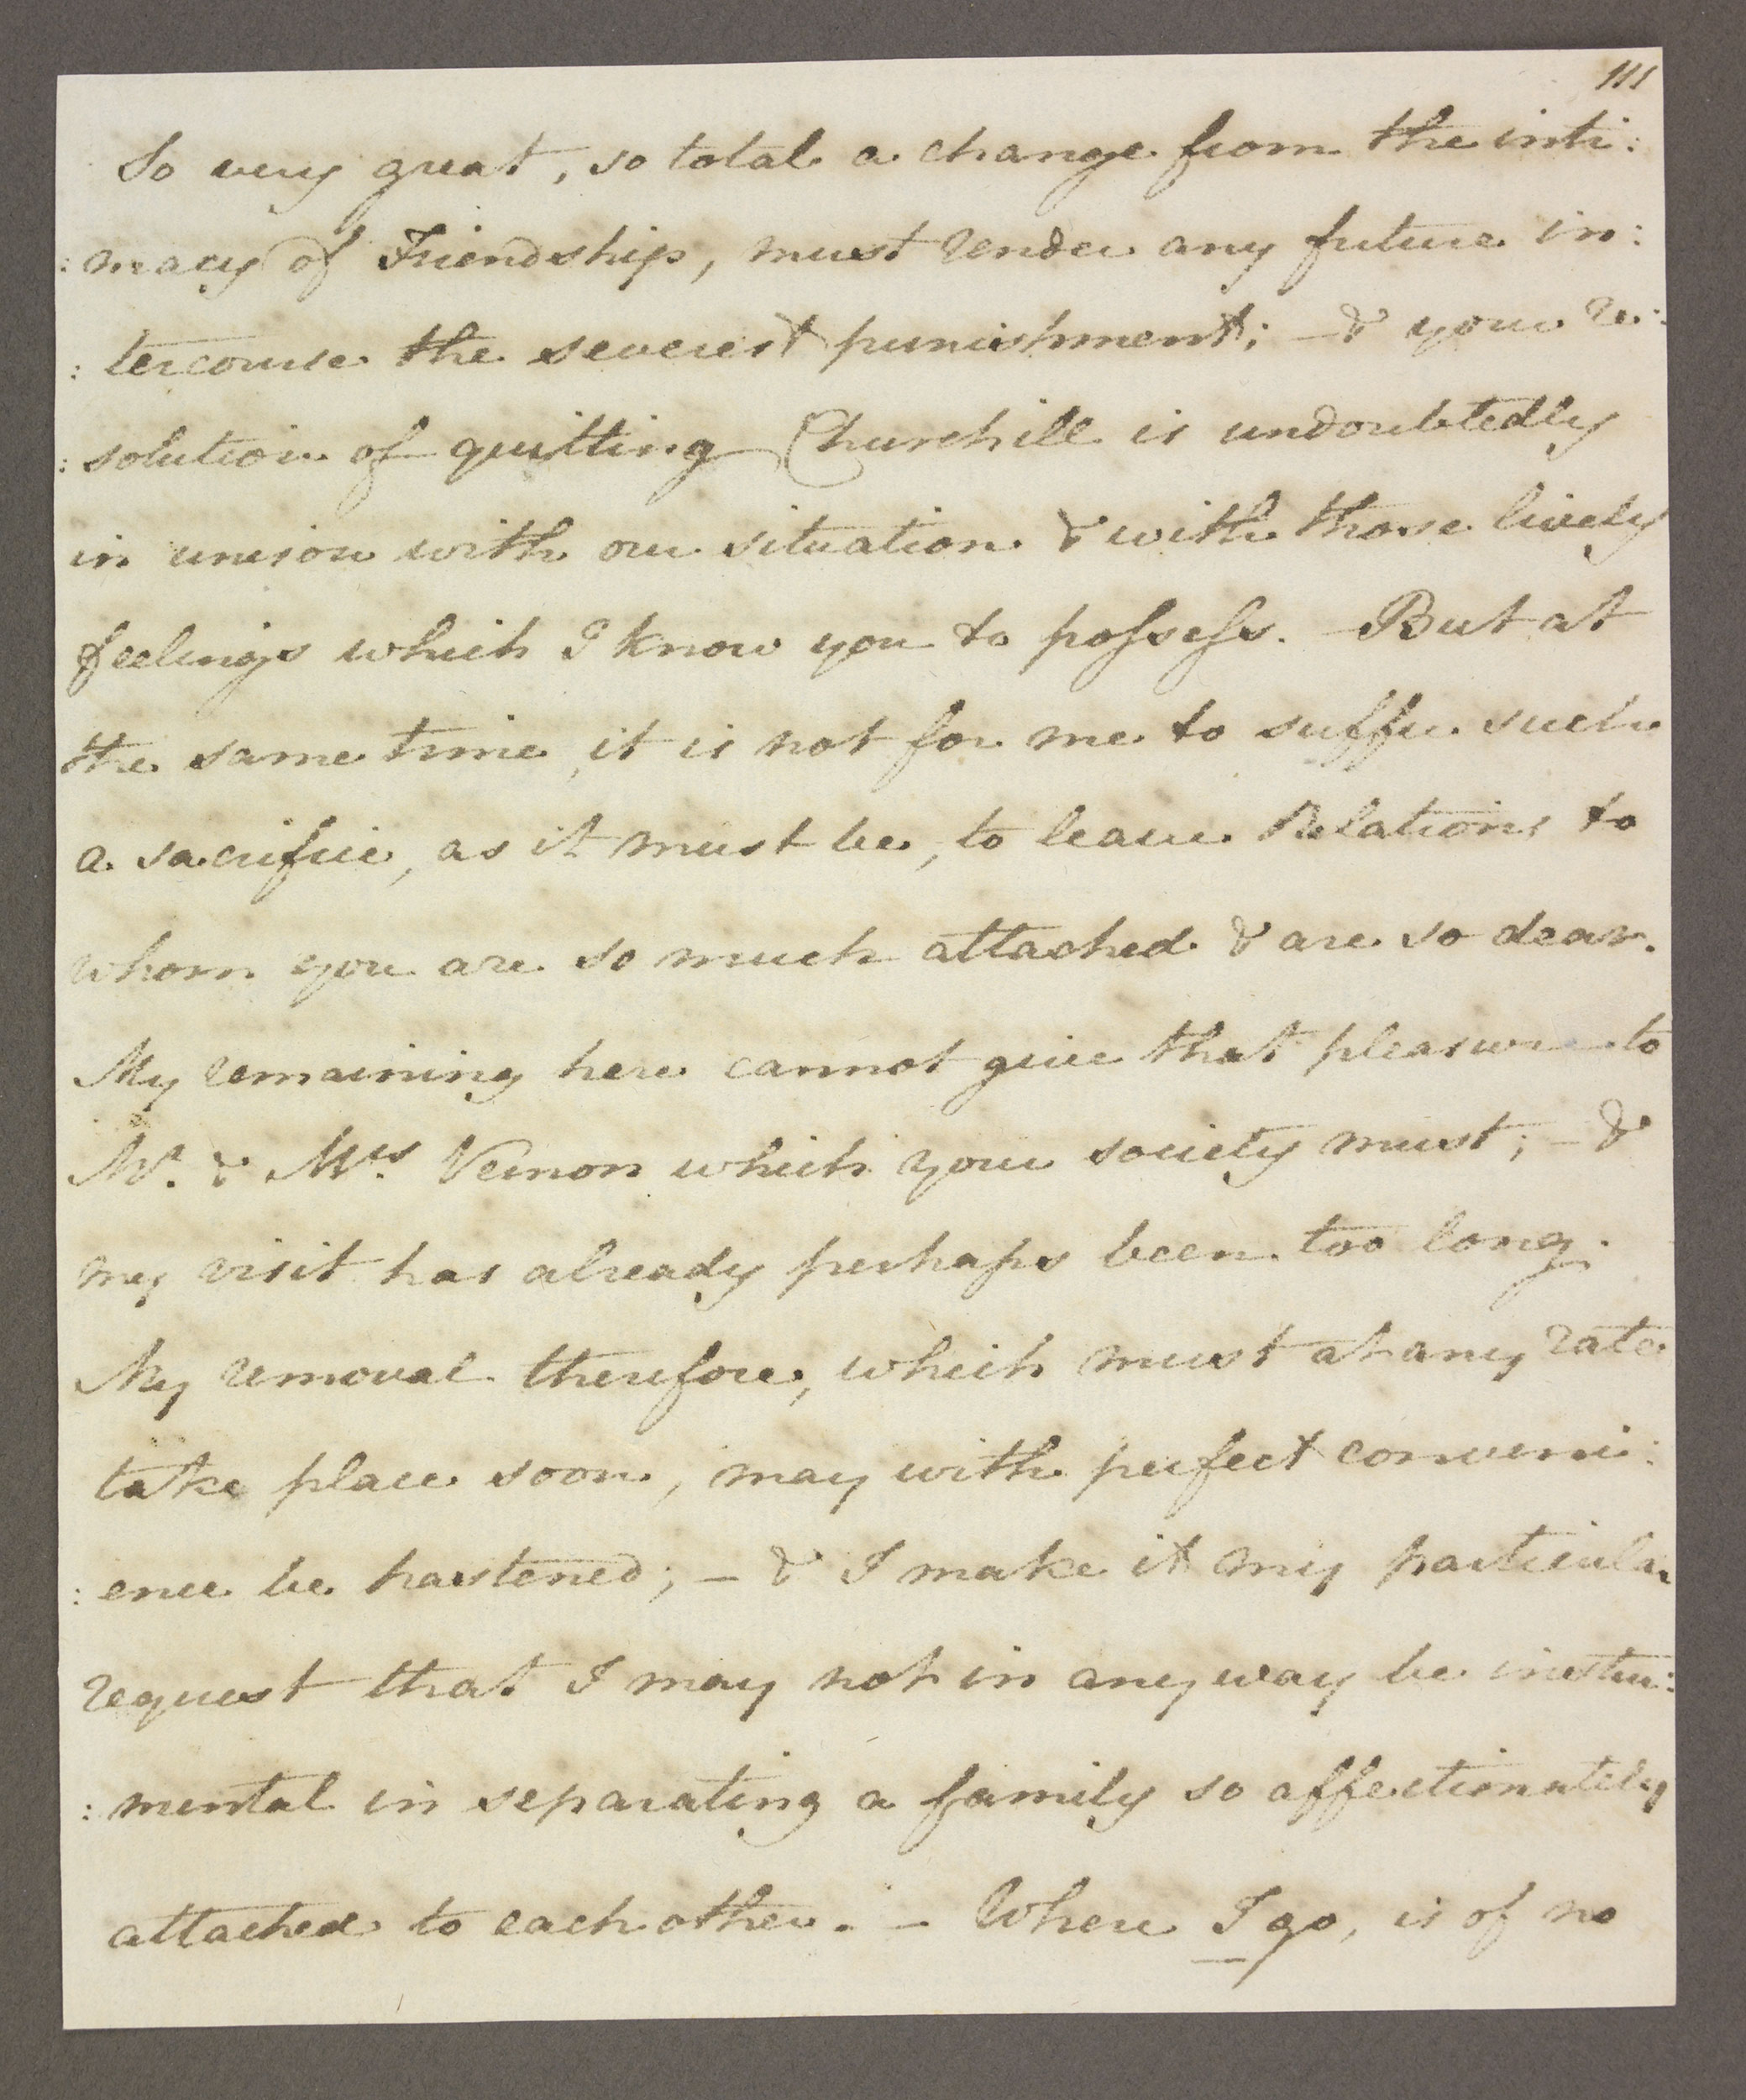 111
So very great, so total a change from the inti:
:macy of Friendship, must render any future in:
:tercourse the severest punishment; — & your re:
:solution of quitting Churchill is undoubtedly
in unison with our situation & with those lively
feelings which I know you to possess. — But at
the same time, it is not for me to suffer such
a sacrifice, as it must be, to leave Relations to
whom you are so much attached & are so dear.
My remaining here cannot give that pleasure to
Mr. & Mrs. Vernon which your society must; — &
my visit has already perhaps been too long.
My removal therefore, which must at any rate
take place soon, may with perfect conveni:
:ence be hastened; — & I make it my particular
request that I may not in any way be instru:
:mental in separating a family so affectionately
attached to each other. — Where I go, is of no